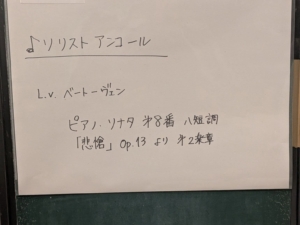 ♪ソリスト アンコール
L.v. ベートーヴェン
ピアノ・ソナタ 第8番 ハ短調
「悲愴」Op.13 より 第2楽章